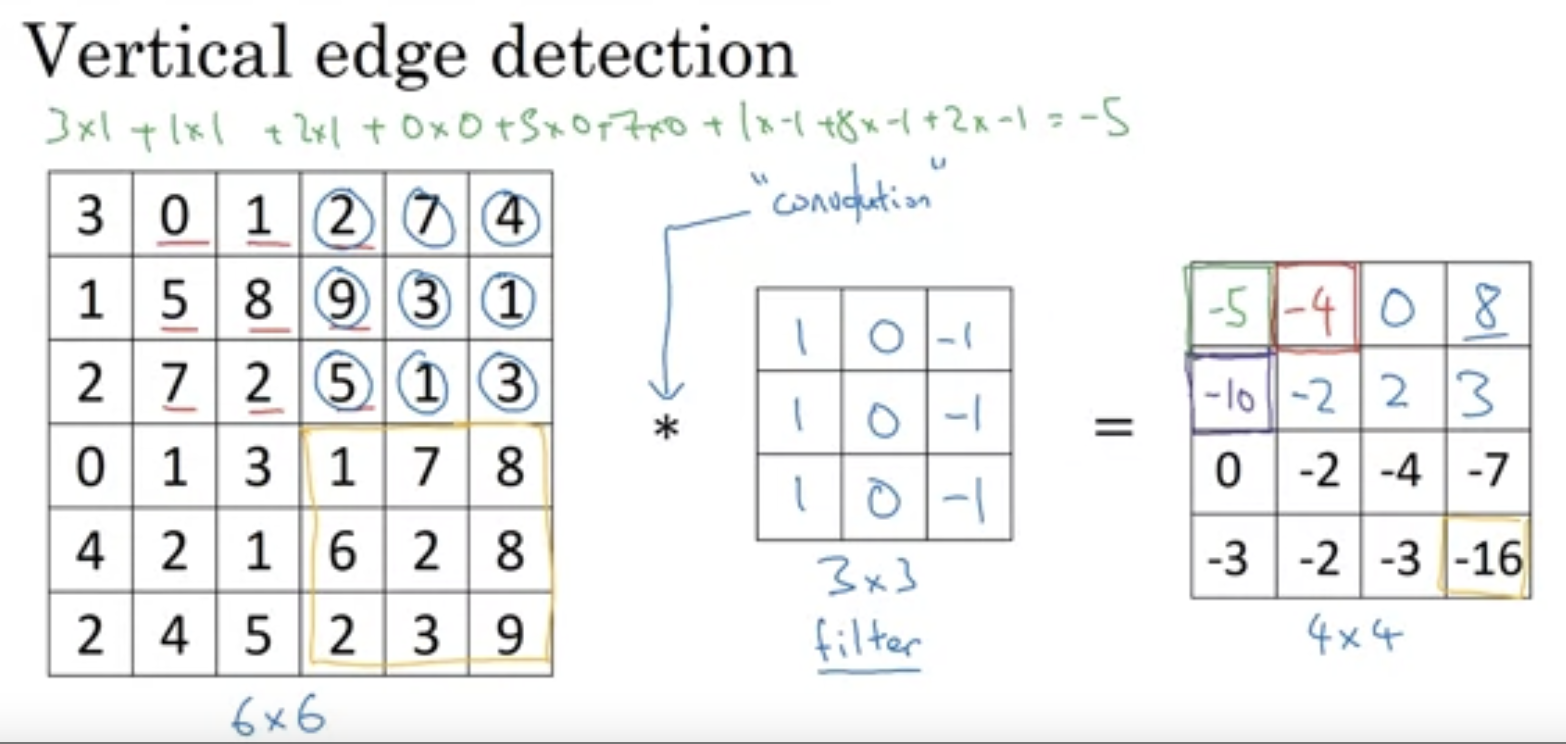 Vertical edge detection
3x1 + 1x1 + 2x1 + 0x0 + 5x0 + 7x0 + 1x-1 + 8x-1 + 2x-1 = -5
"convolution"
3 0 1 2 7 4
1 5 8 9 3 1
2 7 2 5 1 3
0 1 3 1 7 8
4 2 1 6 2 8
2 4 5 2 3 9
6x6
*
1 0 -1
1 0 -1
1 0 -1
3x3
filter
=
-5 -4 0 8
-10 -2 2 3
0 -2 -4 -7
-3 -2 -3 -16
4x4